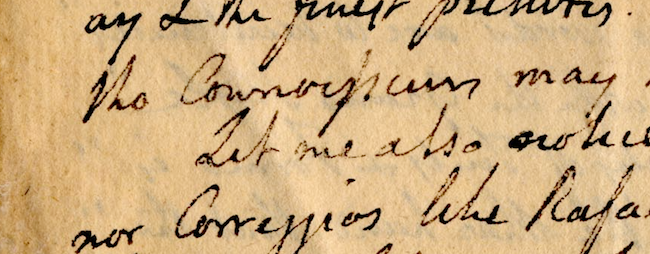 ay & the finest pictures.
tho Connoisseurs may
Let me also notice
nor Correggios like Rafa